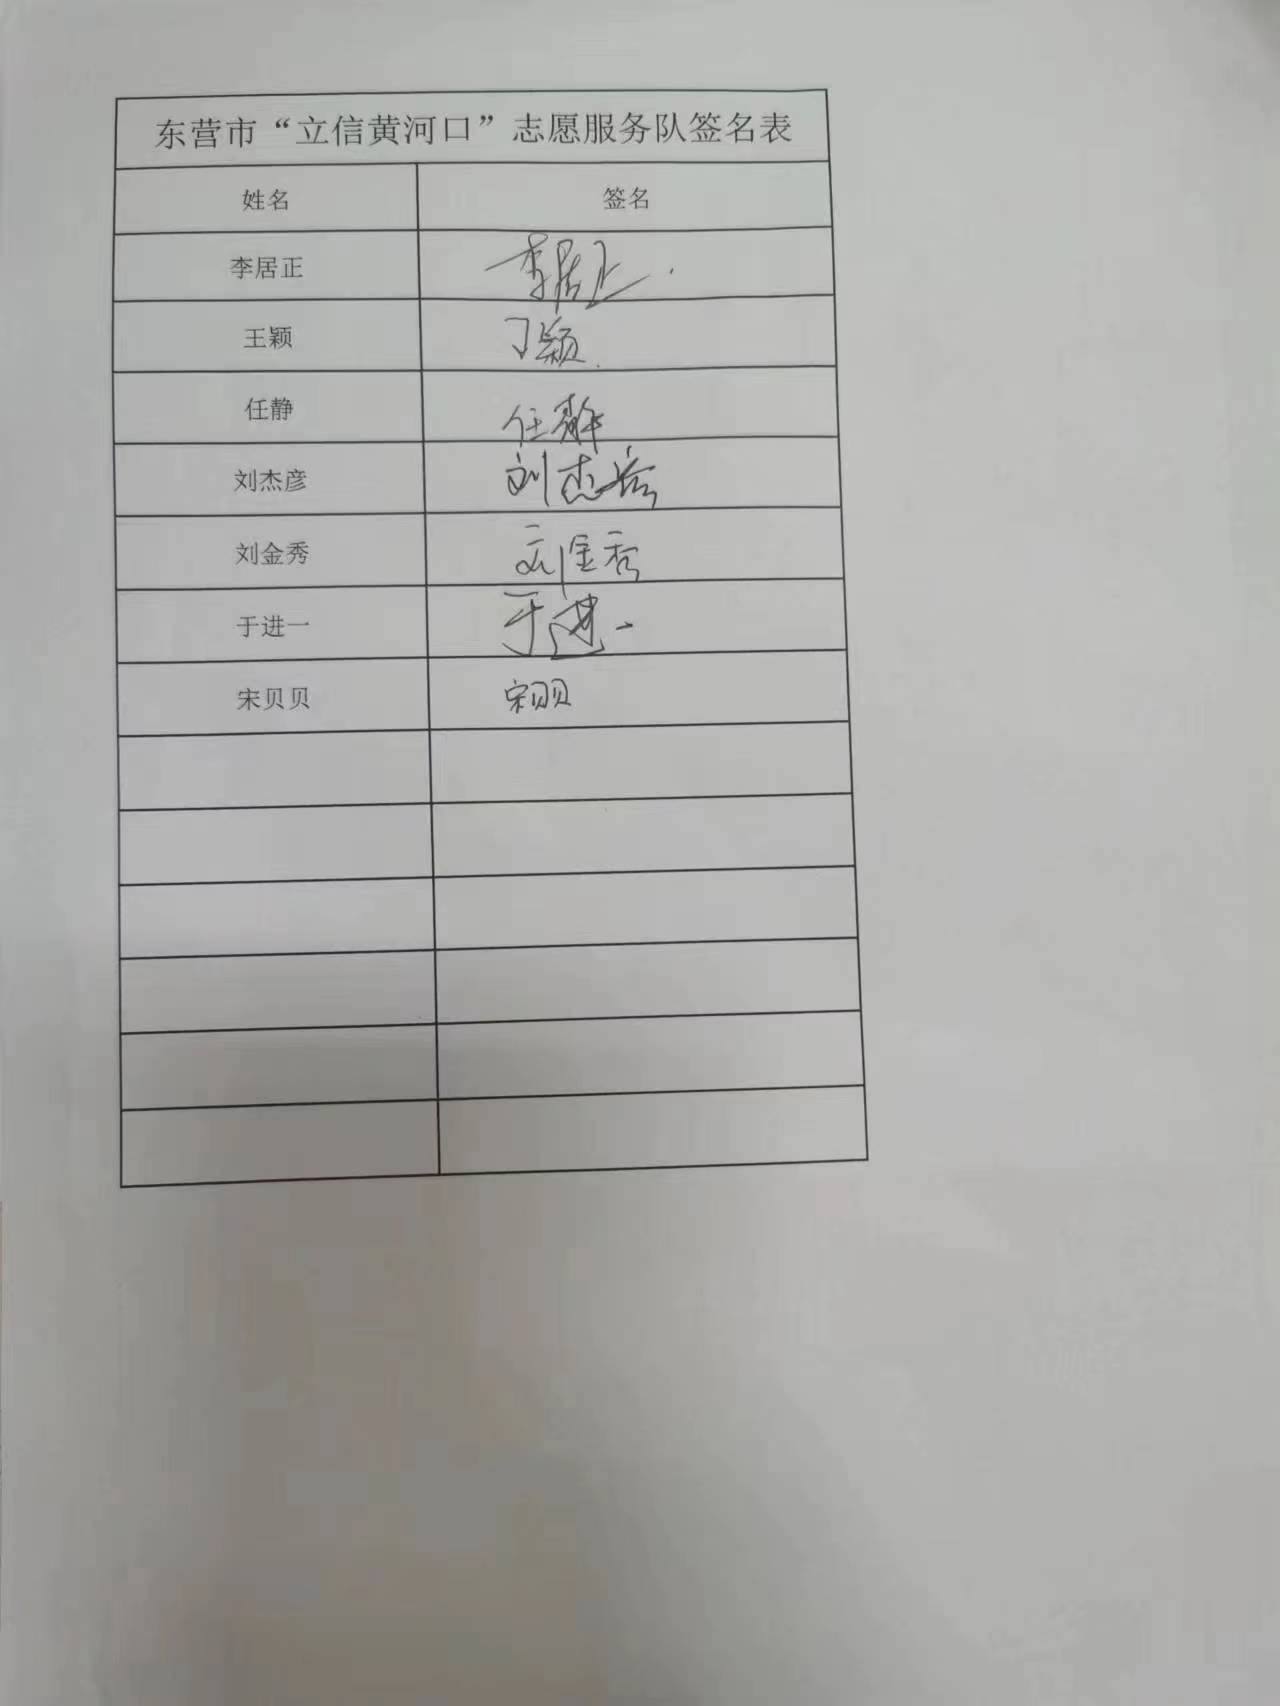 东营市“立信黄河口”志愿服务队签名表
姓名 签名
李居正 李居正
王颖 王颖
任静 任静
刘杰彦 刘杰彦
刘金秀 刘金秀
于进一 于进一
宋贝贝 宋贝贝